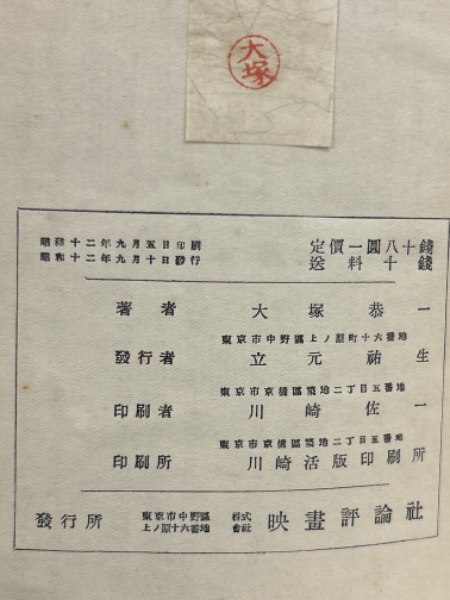 大塚
昭和十二年九月五日印刷
昭和十二年九月十日發行
定價一圓八十錢
送料十錢
著者 大塚恭一
東京市中野區上ノ原町十六番地
發行者 立元祐生
東京市京橋區築地二丁目五番地
印刷者 川崎佐一
東京市京橋區築地二丁目五番地
印刷所 川崎活版印刷所
發行所 東京市中野區上ノ原十六番地 株式會社 映畫評論社